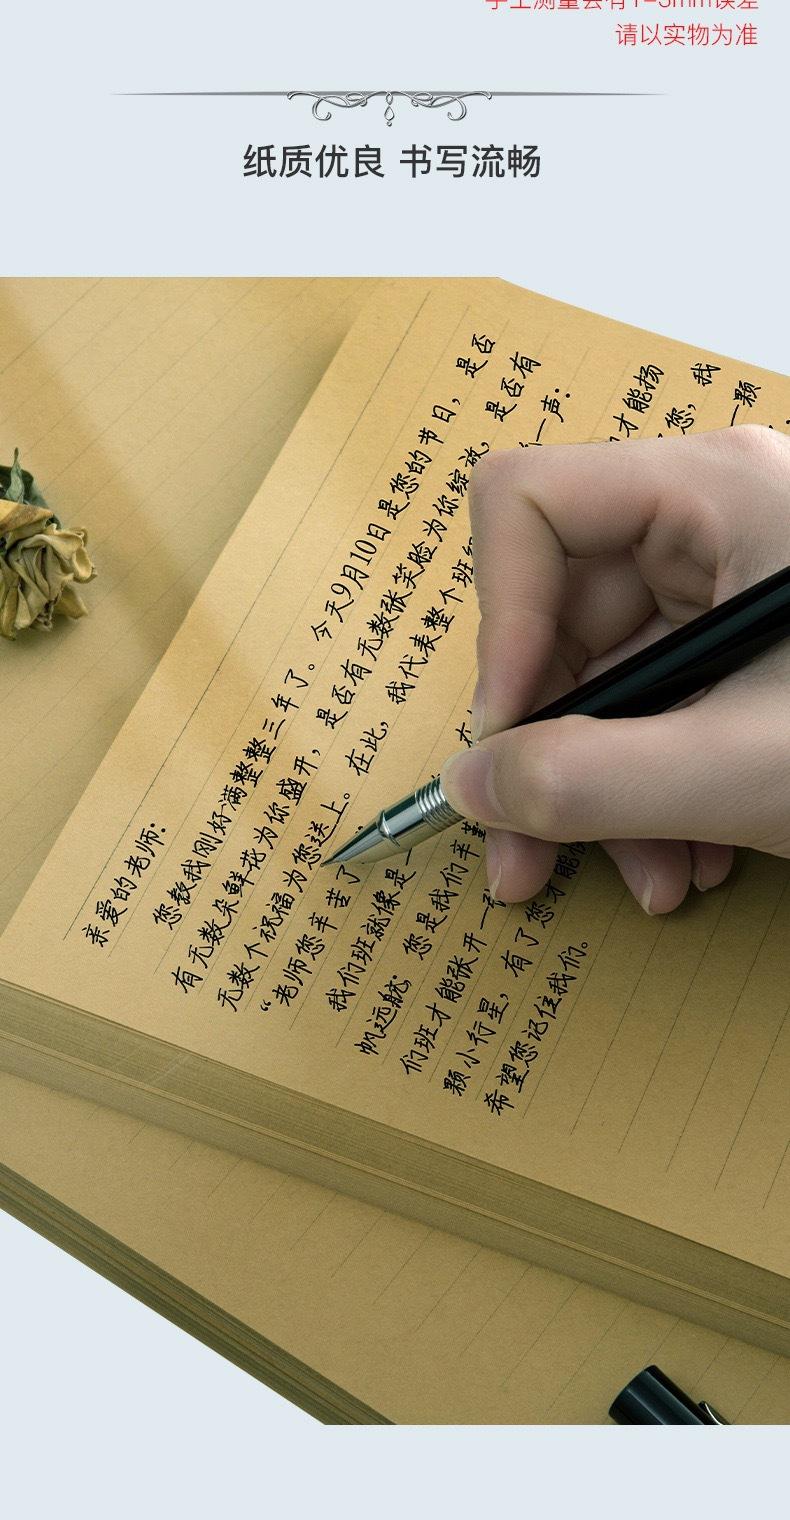 手工测量会有1-3mm误差
请以实物为准
纸质优良 书写流畅
亲爱的老师:
您教我刚好满整整三年了。今天9月10日是您的节日,是否
有无数朵鲜花为你盛开,是否有无数张笑脸为你绽放,是否有
无数个祝福为您送上。在此,我代表整个班 一声:
“老师您辛苦了
我们班就像是一 才能扬
帆远航; 您是我们辛勤 您,我
们班才能张开一 一颗
颗小行星,有了您才能
希望您记住我们。